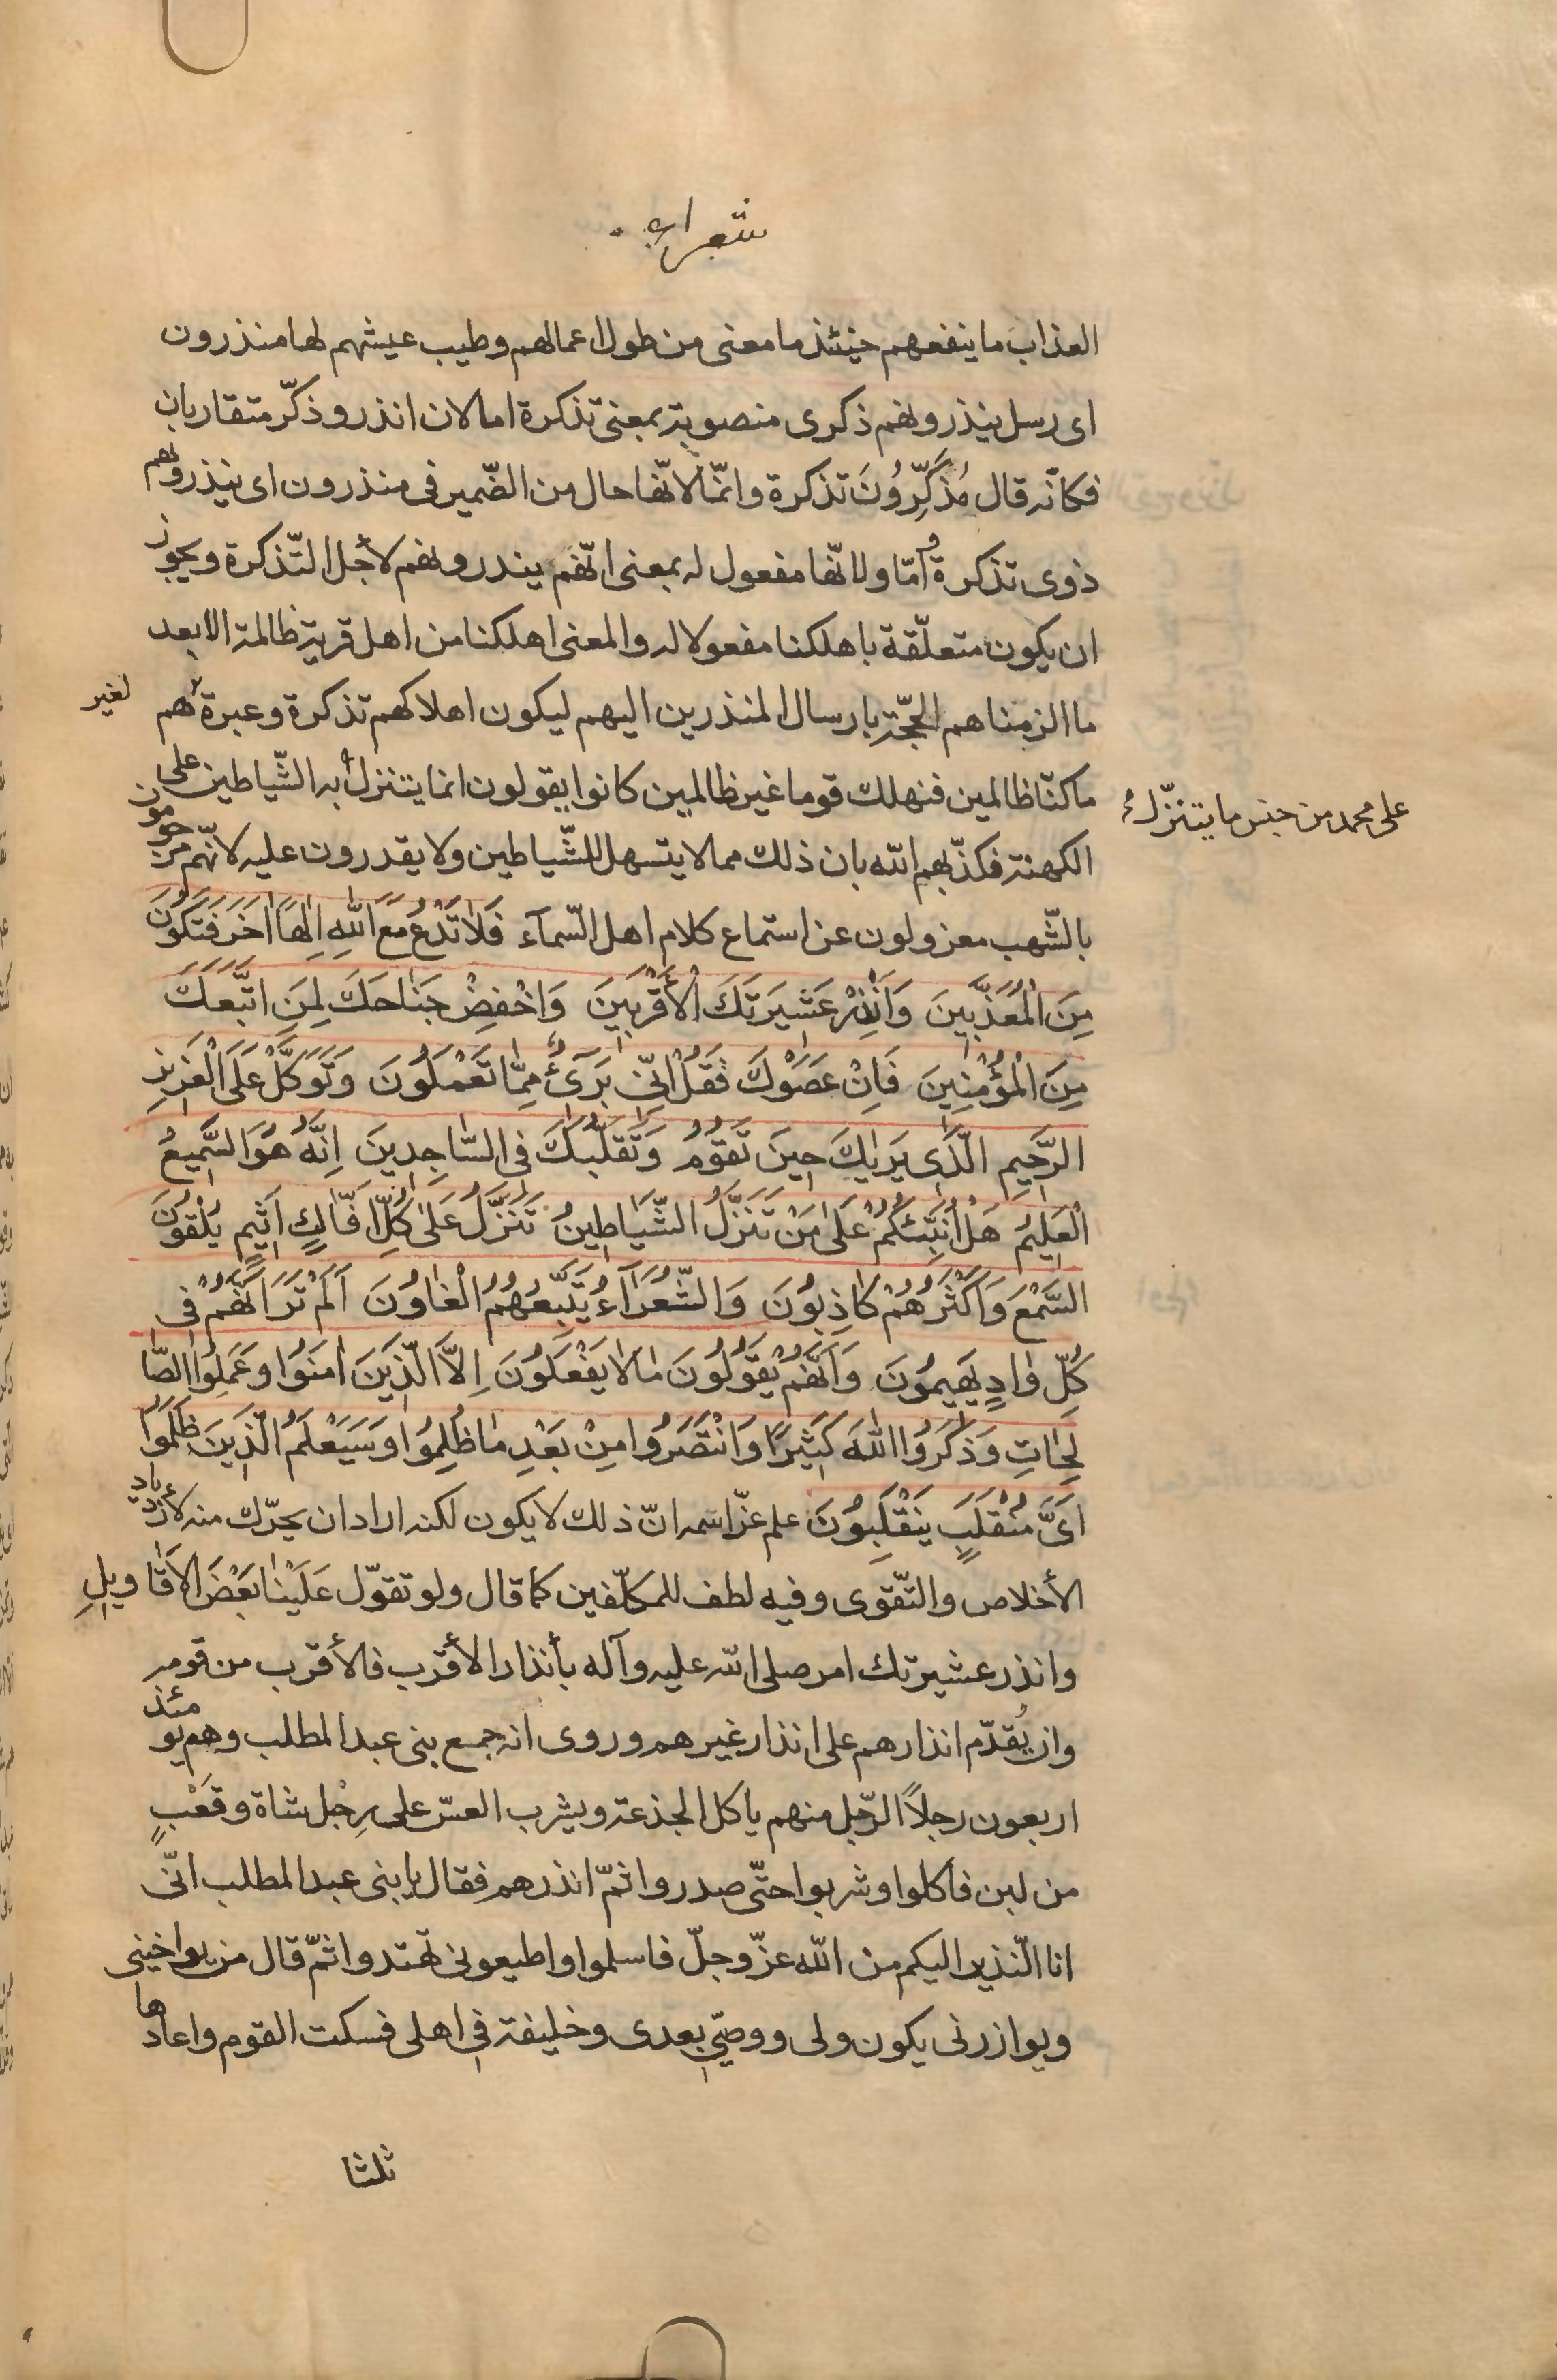 شعراء
العذاب ما ينفعهم حينئذ ما معنى من طول اعمالهم وطيب عيشهم لها منذرون
اى رسل ينذرونهم ذكرى منصوبة بمعنى تذكرة اما لان انذر وذكّر متقاربان
فكانّه قال مُذَكِّرُونَ تذكرة وامّا لانّها حال من الضّمير فى منذرون اى ينذرونهم
ذوى تذكرة وامّا ولانّها مفعول له بمعنى انّهم ينذرونهم لأجل التّذكرة ويجوز
ان يكون متعلّقة باهلكنا مفعولا له والمعنى اهلكنا من اهل قرية ظالمة الا بعد
ما الزمناهم الحجّة بارسال المنذرين اليهم ليكون اهلاكهم تذكرة وعبرة هم
لغير
ما كنّا ظالمين فنهلك قوما غير ظالمين كانوا يقولون انما يتنزل به الشّياطين على
على محمد من جنس ما يتنزّل
الكهنة فكذّبهم الله بان ذلك مما لا يتسهل للشّياطين ولا يقدرون عليه لانّهم مرجومون
بالشّهب معزولون عن استماع كلام اهل السّمآء فَلاٰ تَدْعُ مَعَ اللّٰهِ اِلٰهًا اٰخَرَ فَتَكُونَ
مِنَ الْمُعَذَّبِينَ وَاَنْذِرْ عَشِيَرتَكَ الْأَقْرَبِينَ وَاخْفِضْ جَنٰاحَكَ لِمَنِ اتَّبَعَكَ
مِنَ الْمُؤْمِنِينَ فَاِنْ عَصَوْكَ فَقُلْ اِنّى بَرَىءٌ مِمّٰا تَعْمَلُونَ وَتَوَكَّلْ عَلَى الْعَزِيزِ
الرَّحِيمِ الَّذى يَرٰيكَ حِينَ تَقُومُ وَتَقَلُّبَكَ فى السّٰاجِدِينَ اِنَّهُ هُوَ السَّمِيعُ
الْعَلِيمُ هَلْ اُنَبِّئُكُمْ عَلىٰ مَنْ تَنَزَّلُ الشَّيٰاطِينُ تَنَزَّلُ عَلىٰ كُلِّ اَفّٰاكٍ اَثِيمٍ يُلْقُونَ
السَّمْعَ وَاَكْثَرُهُمْ كٰاذِبُونَ وَالشُّعَرٰآءُ يَتَّبِعُهُمُ الْغٰاوُنَ اَلَمْ تَرَ اَنَّهُمْ فى
كُلِّ وٰادٍ يَهِيمُونَ وَاَنَّهُمْ يَقُولُونَ مٰا لاٰ يَفْعَلُونَ اِلاَّ الَّذِينَ اٰمَنُوا وَعَمِلُوا الصّٰا
لِحٰاتِ وَذَكَرُوا اللّٰهَ كَثِيرًا وَانْتَصَرُوا مِنْ بَعْدِ مٰا ظُلِمُوا وَسَيَعْلَمُ الَّذِينَ ظَلَمُوا
اَىَّ مُنْقَلَبٍ يَنْقَلِبُونَ علم عزّ اسمه انّ ذلك لا يكون لكنه اراد ان يحرّك منه لازدياد
الأخلاص والتّقوى وفيه لطف للمكلّفين كما قال ولو تقوّل عَلَيْنٰا بَعْضَ الاَقٰاويلِ
وانذر عشيرتك امر صلى الله عليه وآله بأنذار الأقرب فالأقرب من قومه
وان يُقدّم انذارهم على انذار غيرهم وروى انه جمع بنى عبد المطلب وهم يومئذ
اربعون رجلاً الرّجل منهم ياكل الجذعة ويشرب العسّ على رِجْل شاة وقَعْبٍ
من لبن فأكلوا وشربوا حتّى صدروا ثمّ انذرهم فقال يا بنى عبد المطلب انّى
انا النّذير اليكم من الله عزّ وجلّ فاسلموا واطيعونى تهتدوا ثمّ قال من يواخينى
ويوازرنى يكون ولى ووصيّى بعدى وخليفة فى اهلى فسكت القوم واعادها
ثلثا